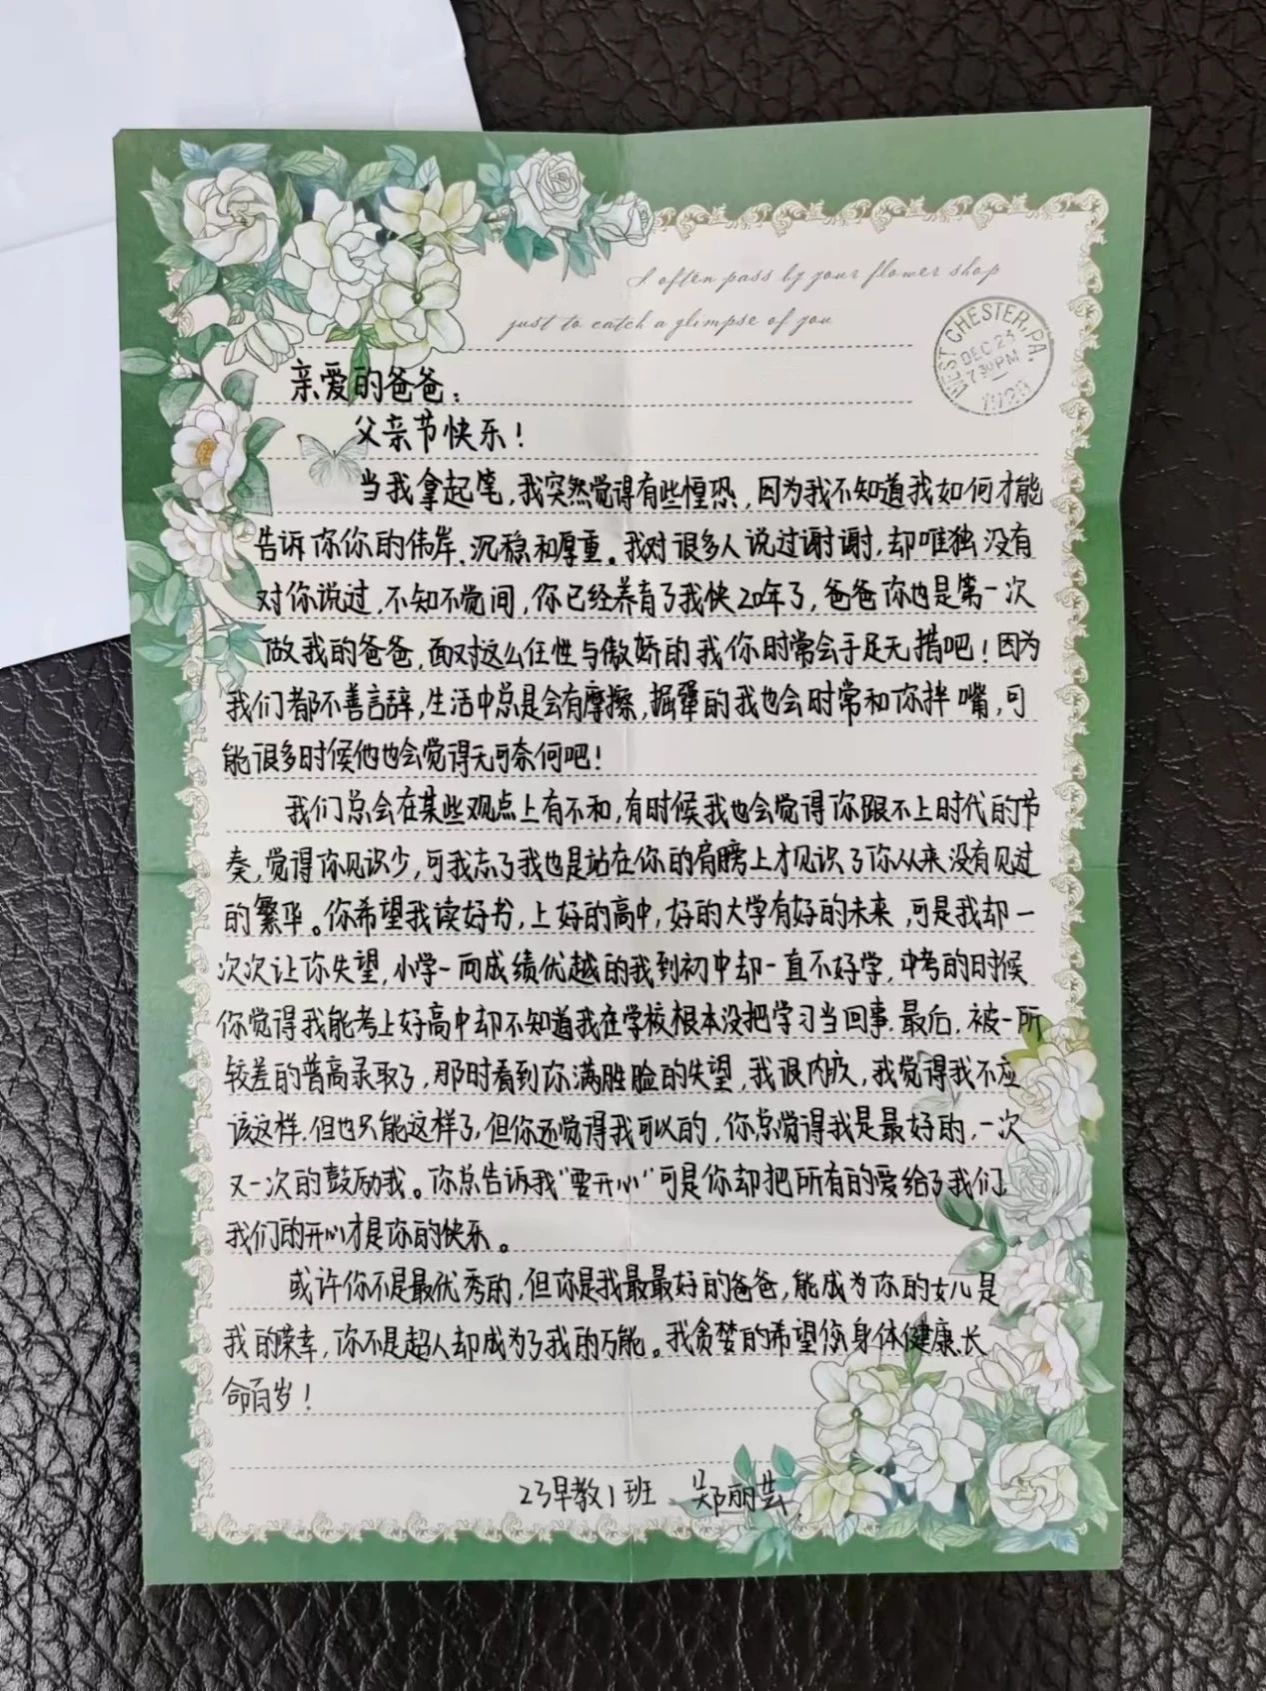 I often pass by your flower shop
just to catch a glimpse of you
WEST CHESTER, PA.
DEC 23
7 30 PM
亲爱的爸爸：
父亲节快乐！
当我拿起笔，我突然觉得有些惶恐，因为我不知道我如何才能
告诉你你的伟岸、沉稳和厚重。我对很多人说过谢谢，却唯独没有
对你说过，不知不觉间，你已经养育了我快20年了，爸爸你也是第一次
做我的爸爸，面对这么任性与傲娇的我你时常会手足无措吧！因为
我们都不善言辞，生活中总是会有摩擦，掘犟的我也会时常和你拌嘴，可
能很多时候他也会觉得无可奈何吧！
我们总会在某些观点上有不和，有时候我也会觉得你跟不上时代的节
奏，觉得你见识少，可我忘了我也是站在你的肩膀上才见识了你从来没有见过
的繁华。你希望我读好书，上好的高中，好的大学有好的未来，可是我却一
次次让你失望，小学一向成绩优越的我到初中却一直不好学，中考的时候
你觉得我能考上好高中却不知道我在学校根本没把学习当回事．最后，被一所
较差的普高录取了，那时看到你满脸的失望，我很内疚，我觉得我不应
该这样．但也只能这样了，但你还觉得我可以的，你总觉得我是最好的，一次
又一次的鼓励我。你总告诉我“要开心”可是你却把所有的爱给了我们
我们的开心才是你的快乐。
或许你不是最优秀的，但你是我最最好的爸爸，能成为你的女儿是
我的荣幸，你不是超人却成为了我的万能。我贪婪的希望您身体健康．长
命百岁！
23早教1班 郑丽芸